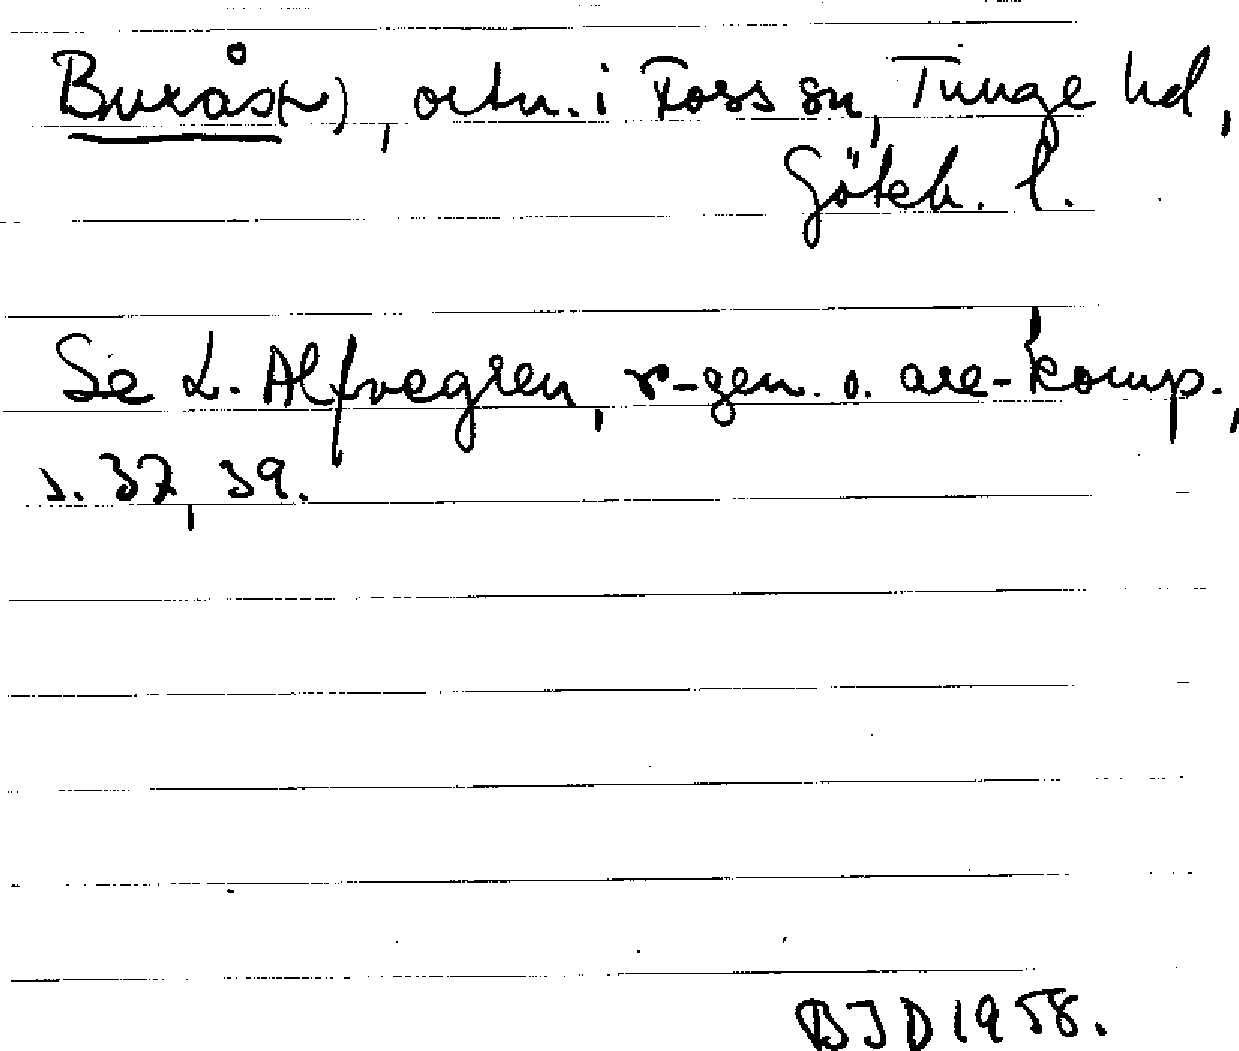 Buxås(ι), ortn. i Foss sn, Tunge hd,
Göteb. l.
Se L. Alfvegren, r-gen. o. are-komp.,
s. 37, 39.
BJD 1958.